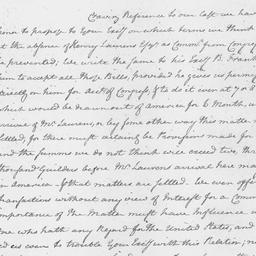 Craving Reference to our last we have
honor to propose to Your Excy on which terms we think
at the absence of Henry Laurens Esqr as Commr from Congress
is presented; we write the same to his Excy B. Frank
him to accept all those Bills, provided he gives us permi
directly on him for acct of Congress, & to do it even at 7 or 8
which would be drawn out of America for 6 Month, u
arrival of Mr Laurens, or by some other way this matter
settled, for there must certainly be Provision made for
and the summs we do not think wice exceed two, th
thousand Guilders before Mr Laurens arrival here ma
in America & that matters are settled. We even offer
transactions without any view of Interest for a Comm
importance of the Matter must have Influence u
one who hath any Regard for the United States, and
ed us even to trouble Your Excy with this Relation; no